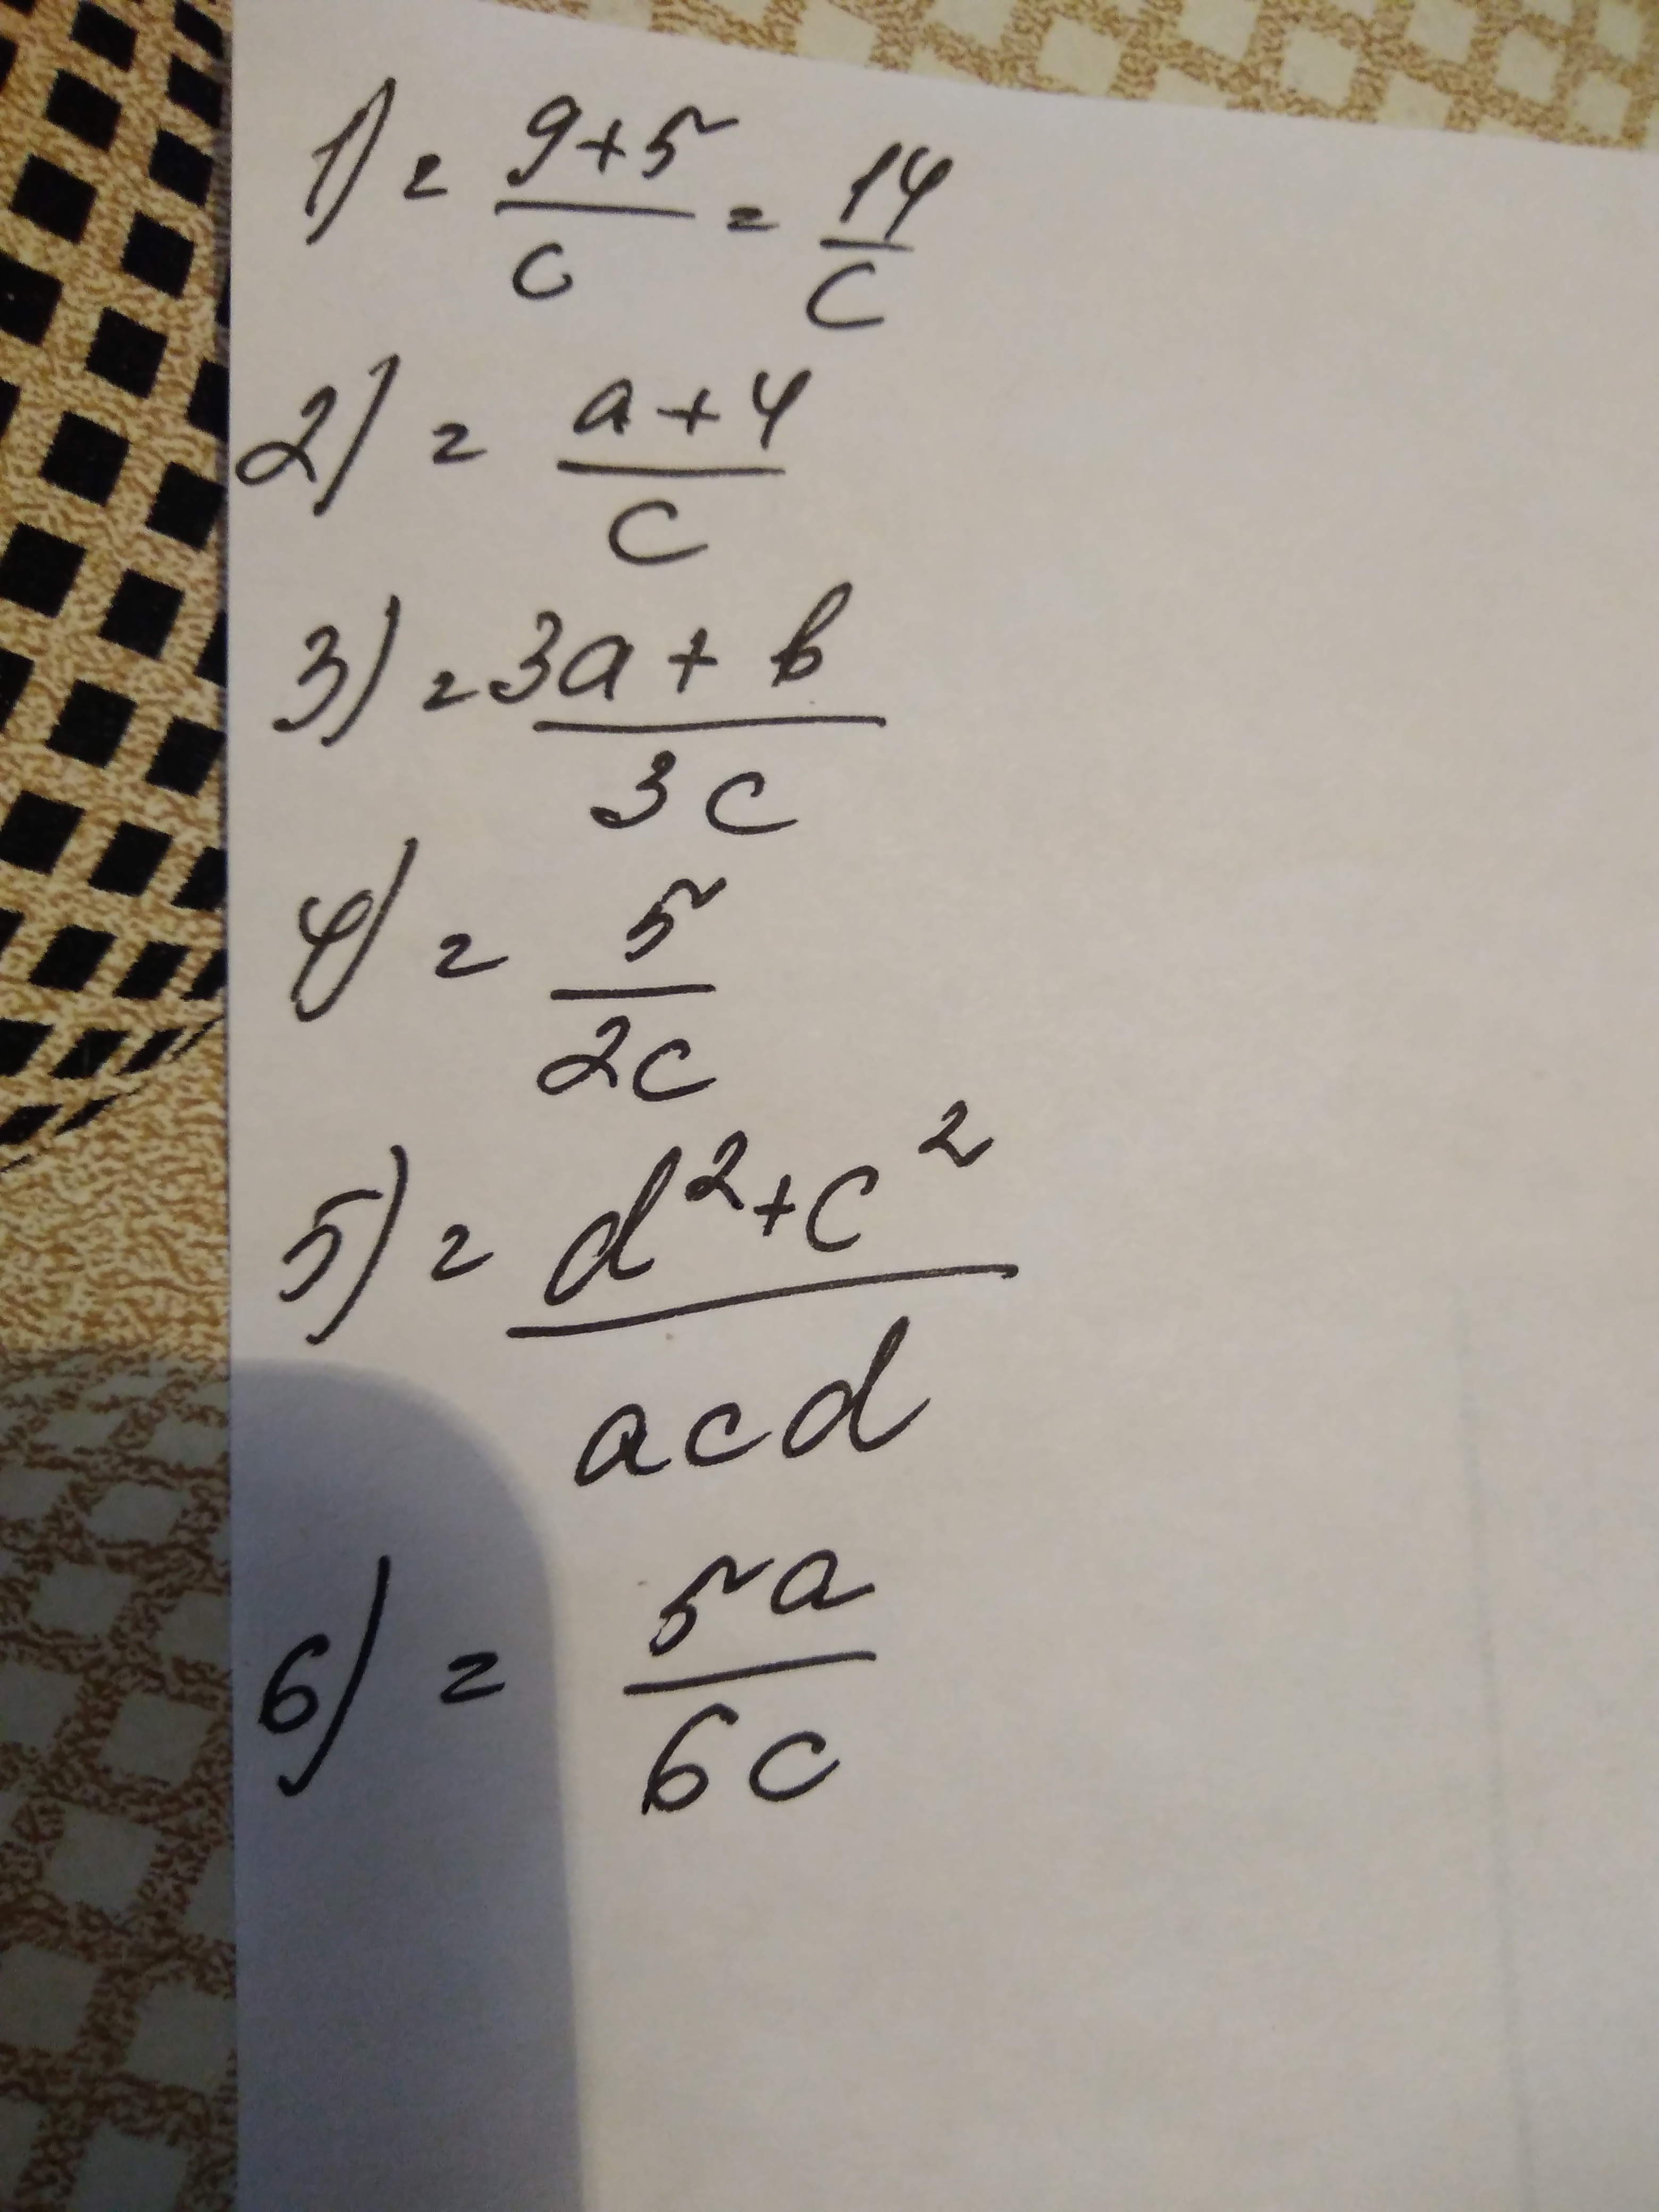 1) = (9+5)/c = 14/c
2) = (a+4)/c
3) = (3a+b)/(3c)
4) = 5/(2c)
5) = (d²+c²)/(acd)
6) = (5a)/(6c)